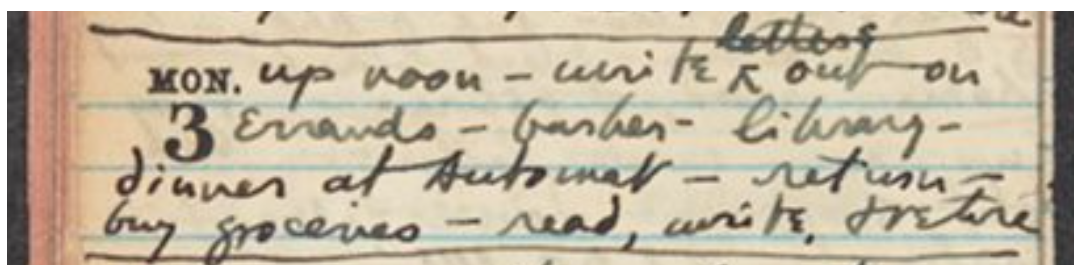 MON. up noon – write letters out on
3 Errands – barber – library –
dinner at Automat – return –
buy groceries – read, write, & retire